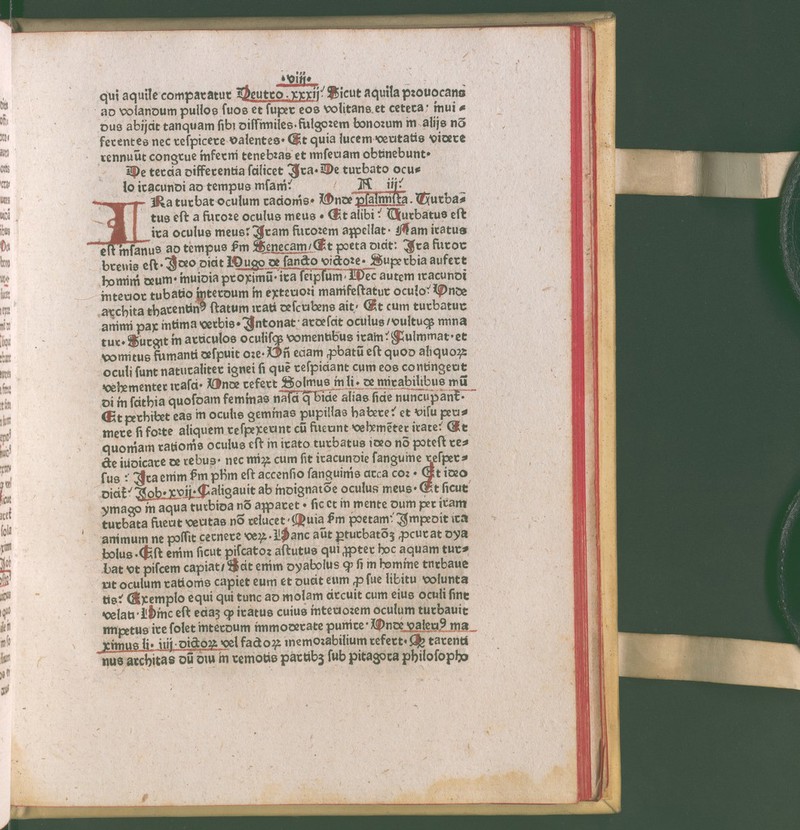 .viij.
qui aquile comparatur Deutro.xxxij: Sicut aquila prouocans
ad volandum pullos suos et super eos volitans.et cetera: inui⸗
dus abijcit tanquam sibi dissimiles.fulgorem bonorum in alijs nō
ferentes nec respicere valentes. Et quia lucem veritatis videre
rennuūt congrue inferni tenebras et miseriam obtinebunt.
De tercia differentia scilicet Ira. De turbato ocu⸗
lo iracundi ad tempus insani: A iij:
IRa turbat oculum racionis. Vnde psalmista. Turba⸗
tus est a furore oculus meus. Et alibi: Turbatus est
ira oculus meus: Iram furorem appellat. Nam iratus
est insanus ad tempus ẜm Senecam/ Et poeta dicit: Ira furor
breuis est. Ideo dicit Hugo de sancto victore. Superbia aufert
homini deum. inuidia proximū. ira seipsum. Nec autem iracundi
interior tubatio interdum in exteriori manifestatur oculo: Vnde
archita tharentinꝰ statum irati describens ait. Et cum turbatur
animi pax intima verbis. Intonat. ardescit oculus/vultuqꝫ mina
tur. Surgit in articulos oculisqꝫ vomentibus iram: Fulminat. et
vomitus fumanti despuit ore. Vn̄ eciam ꝓbatū est quod aliquoꝝ
oculi sunt naturaliter ignei si quē respiciant cum eos contingerit
vehementer irasci. Vnde refert Solinus in li. de mirabilibus mū
di in scithia quosdam feminas nasci q̄ bicie alias sicie nuncupant̄.
Et perhibet eas in oculis geminas pupillas habere: et visu peri⸗
mere si forte aliquem respexerint cū fuerint vehemēter irate: Et
quoniam rationis oculus est in irato turbatus ideo nō potest re⸗
cte iudicare de rebus. nec miꝝ cum sit iracundie sanguine resper⸗
sus: Ira enim ẜm pħm est accensio sanguinis circa cor. Et ideo
dicit̄: Job.xvij. Caligauit ab indignatōe oculus meus. Et sicut
ymago in aqua turbida nō apparet. sic et in mente dum per iram
turbata fuerit veritas nō relucet. Quia ẜm poetam: Impedit ira
animum ne possit cernere veꝝ. Hanc aūt ꝑturbatōꝫ ꝓcurat dya
bolus. Est enim sicut piscator astutus qui ꝓpter hoc aquam tur⸗
bat vt piscem capiat/ Scit enim dyabolus ꝙ si in homine turbaue
rit oculum rationis capiet eum et ducit eum ꝓ sue libitu volunta
tis: Exemplo equi qui tunc ad molam circuit cum eius oculi sint
velati. Hinc est eciaꝫ ꝙ iratus cuius interiorem oculum turbauit
impetus ire solet interdum immoderate punire. Vnde valeriꝰ ma
ximus li. iiij. dictoꝝ vel factoꝝ memorabilium refert. Q tarenti
nus architas dū diu in remotis partibꝫ sub pitagora philosopho